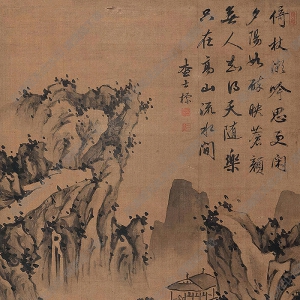 倚杖微吟思更闲
夕陽如醉映蒼顔
無人知得天隨樂
只在高山流水間
查士標